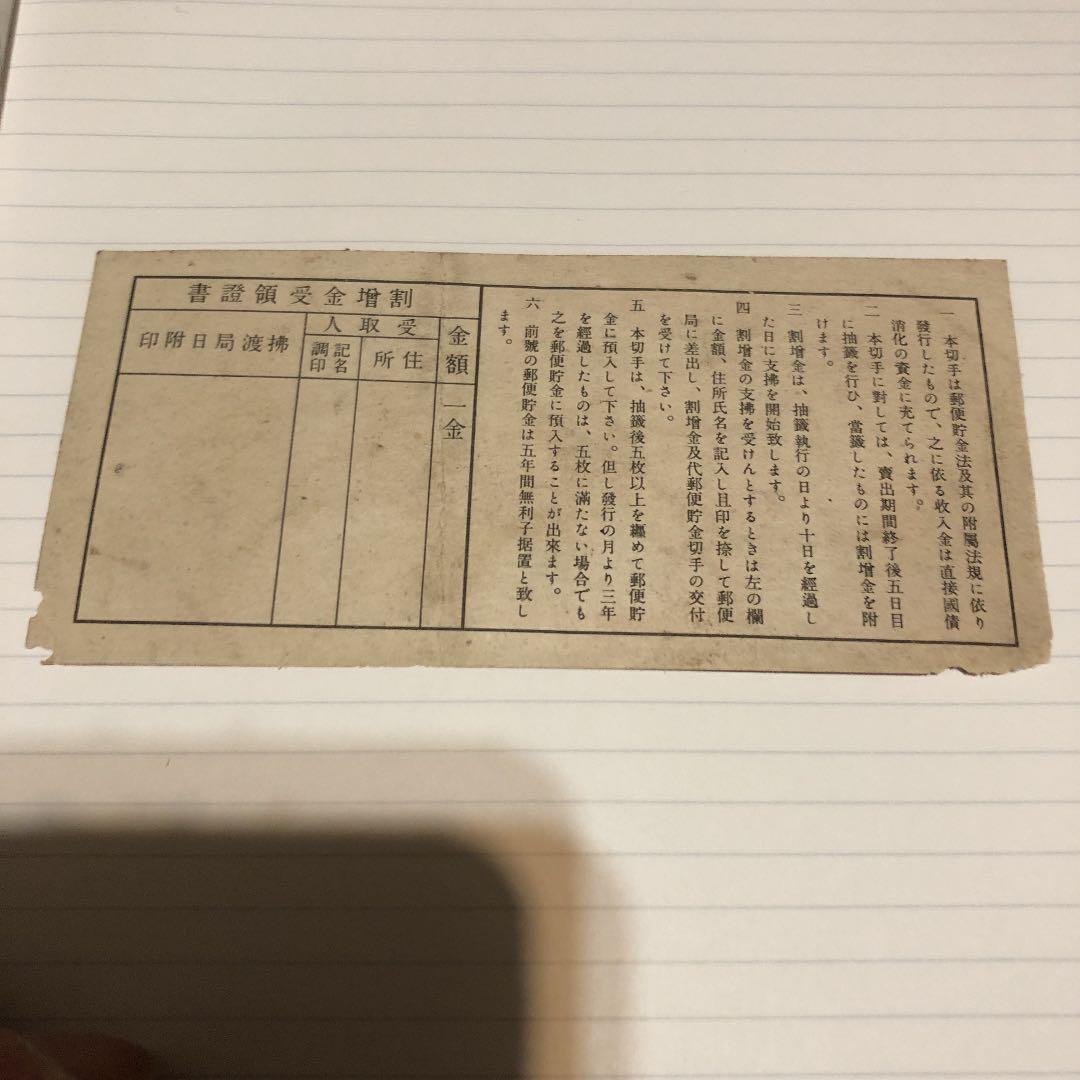 一　本切手は郵便貯金法及其の附屬法規に依り
發行したもので、之に依る收入金は直接國債
消化の資金に充てられます。
二　本切手に對しては、賣出期間終了後五日目
に抽籤を行ひ、當籤したものには割增金を附
けます。
三　割增金は、抽籤執行の日より十日を經過し
た日に支拂を開始致します。
四　割增金の支拂を受けんとするときは左の欄
に金額、住所氏名を記入し且印を捺して郵便
局に差出し、割增金及代郵便貯金切手の交付
を受けて下さい。
五　本切手は、抽籤後五枚以上を纏めて郵便貯
金に預入して下さい。但し發行の月より三年
を經過したものは、五枚に滿たない場合でも
之を郵便貯金に預入することが出來ます。
六　前號の郵便貯金は五年間無利子据置と致し
ます。
割增金受領證書
金額
一金
受取人
住所
記名
調印
拂渡局日附印